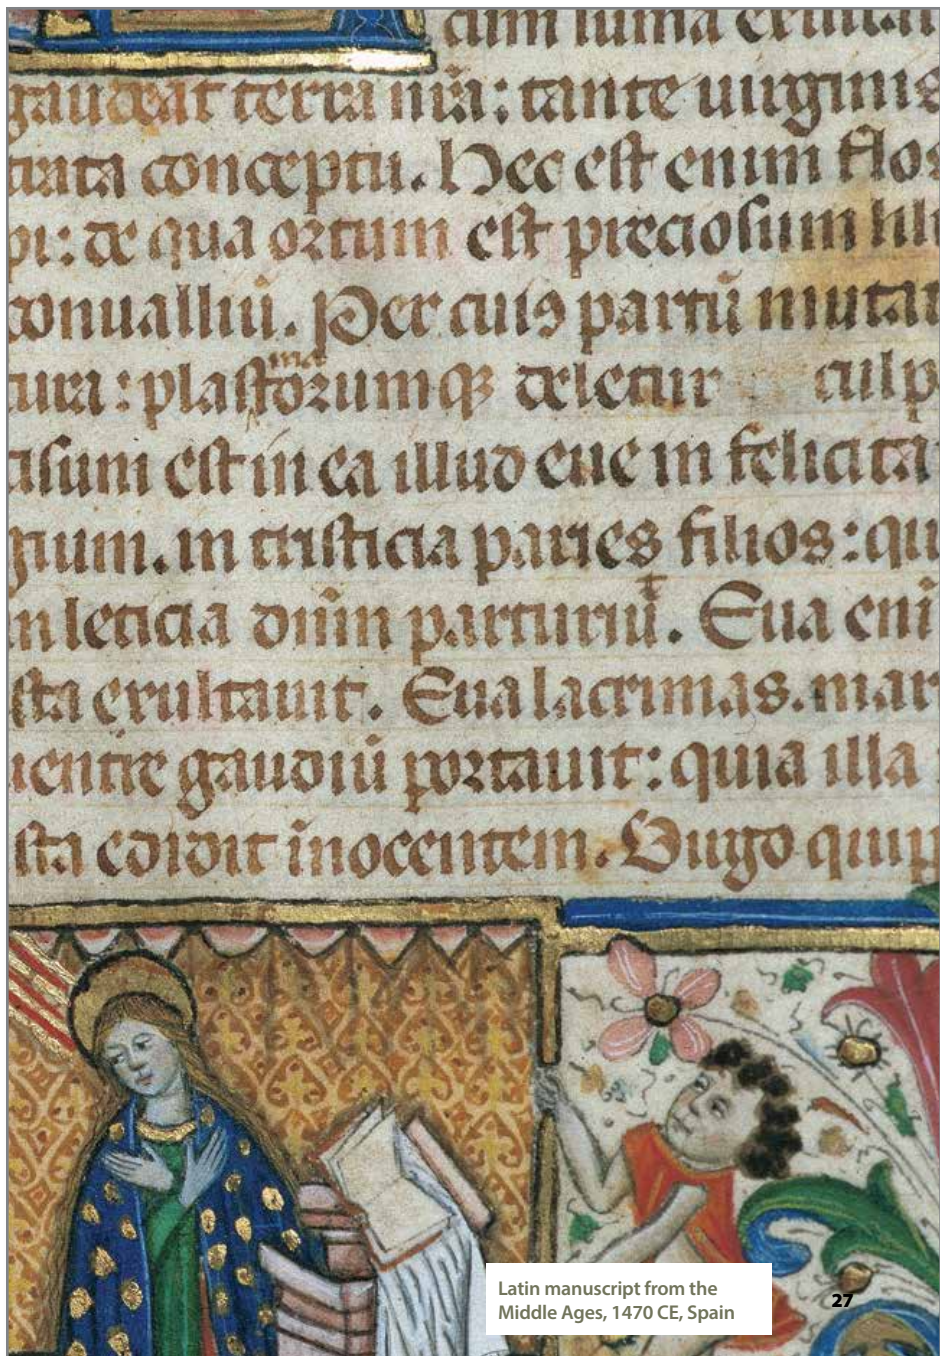 gaudeat terra nr̄a: tante uirginis
conceptu. Hec est enim flos
pi: de qua ortum est preciosum lili
conualliū. Per cuiꝰ partū mutat
tura: plastorumqꝫ deletur culp
asum est in ea illud eue in felicita
gium. in tristicia paries filios: qu
in leticia dn̄m parturiū. Eua eni
sta exultauit. Eua lacrimas. mar
uentre gaudiū portauit: quia illa
sta edidit inocentem. Uirgo quip
Latin manuscript from the
Middle Ages, 1470 CE, Spain
27